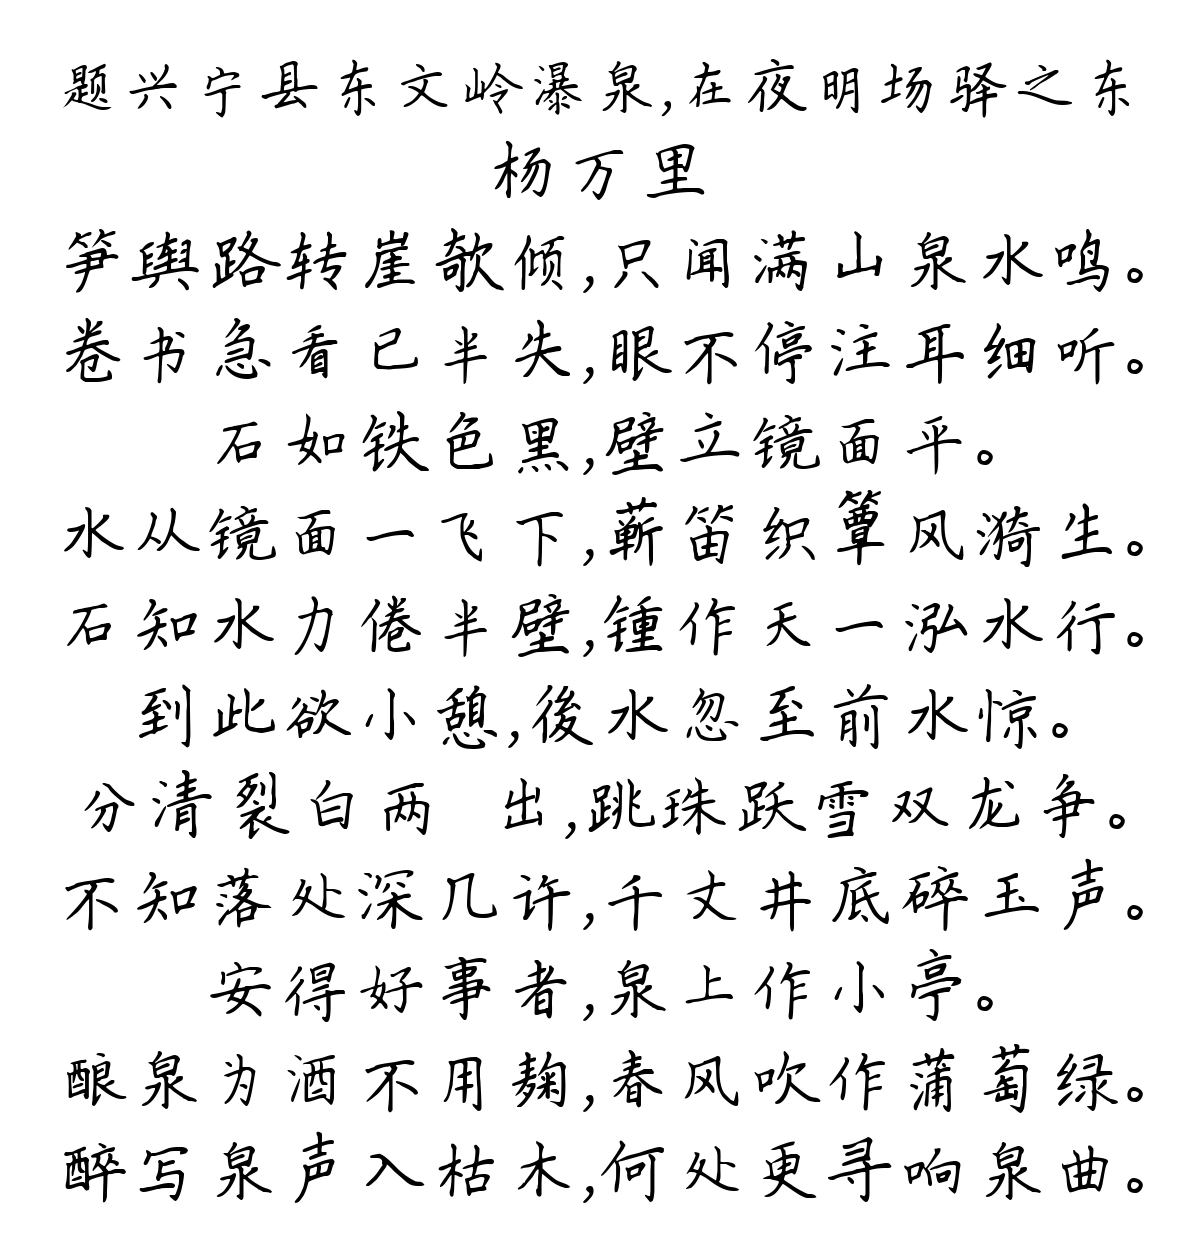 题兴宁县东文岭瀑泉,在夜明场驿之东
杨万里
笋舆路转崖欹倾,只闻满山泉水鸣。
卷书急看已半失,眼不停注耳细听。
石如铁色黑,壁立镜面平。
水从镜面一飞下,蕲笛织簟风漪生。
石知水力倦半壁,锺作天一泓水行。
到此欲小憩,後水忽至前水惊。
分清裂白两 出,跳珠跃雪双龙争。
不知落处深几许,千丈井底碎玉声。
安得好事者,泉上作小亭。
酿泉为酒不用麹,春风吹作蒲萄绿。
醉写泉声入枯木,何处更寻响泉曲。